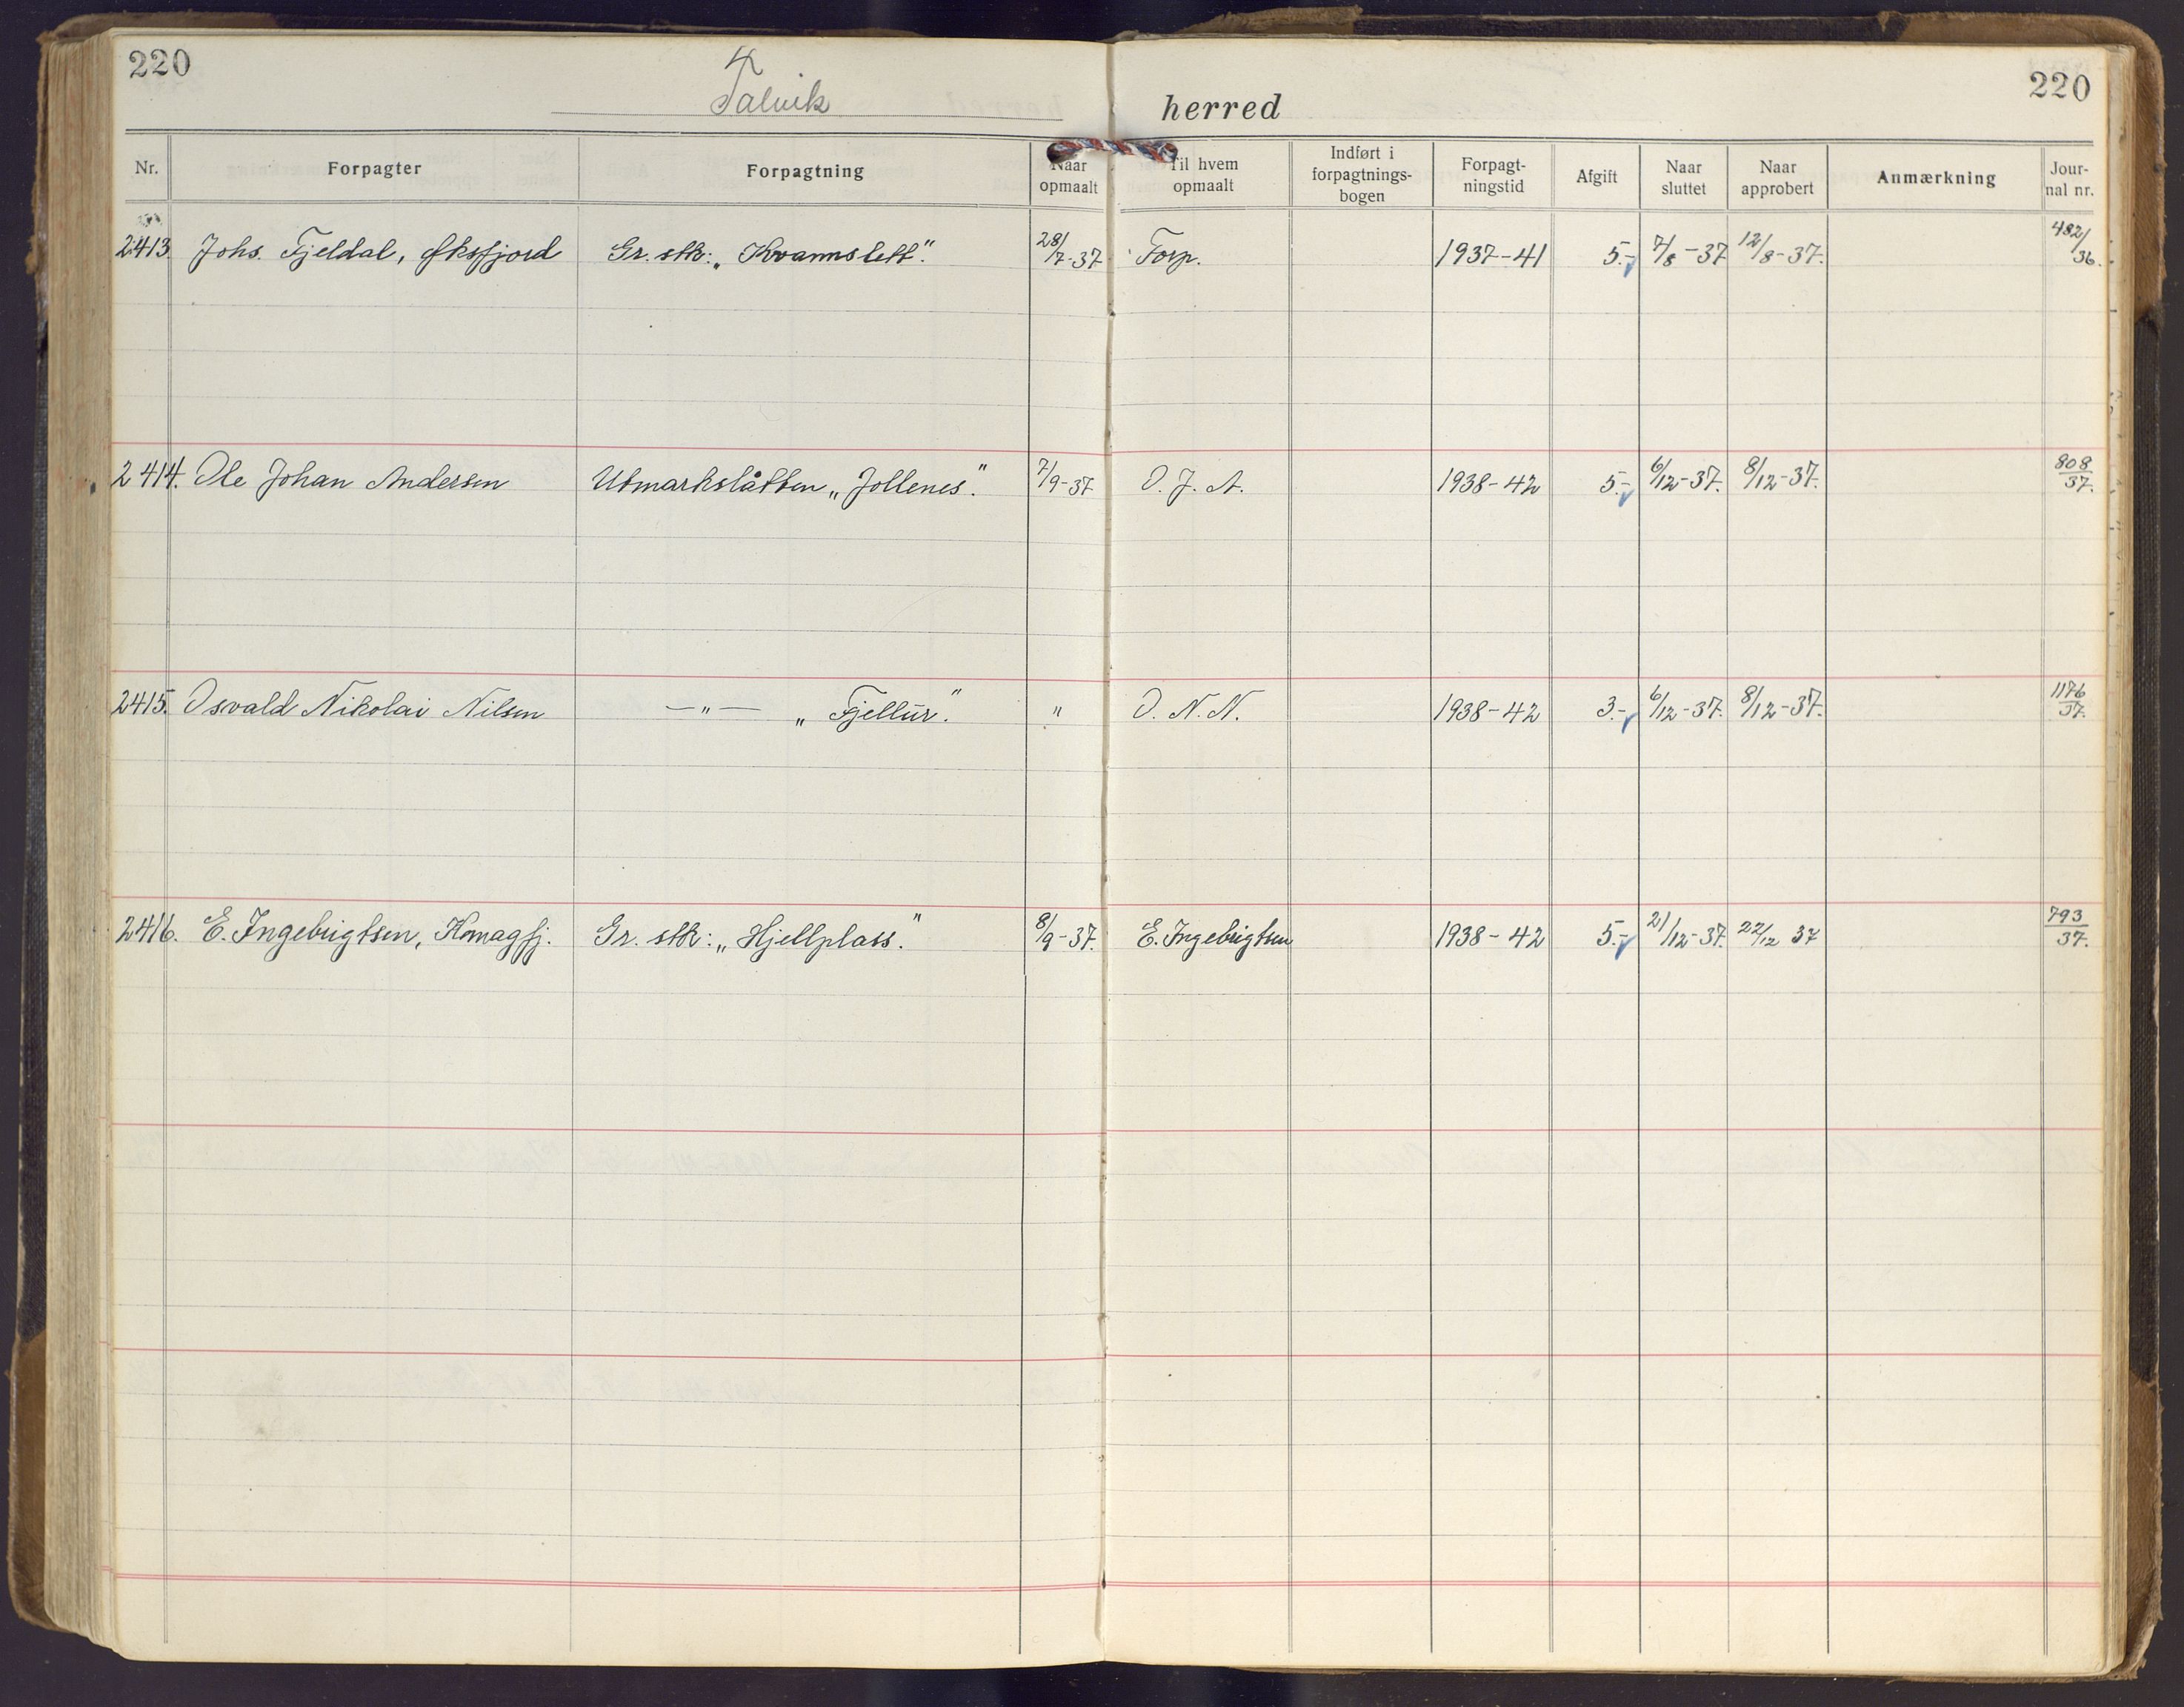 220
4
Talvik herred
220
Nr. Forpagter Forpagtning Naar opmaalt Til hvem opmaalt Indført i forpagtnings-bogen Forpagt-ningstid Afgift Naar sluttet Naar approbert Anmærkning Jour-nal nr.
2413. Johs. Fjeldal, Øksfjord Gr. stk: „Kvannslett". 28/7-37 Forp. 1937-41 5.- 7/8-37 12/8-37. 482/36.
2414. Ole Johan Andersen Utmarkslåtten „Jollenes". 7/9-37 O. J. A. 1938-42 5.- 6/12-37. 8/12-37. 808/37.
2415. Osvald Nikolai Nilsen —"— „Fjellur". " O. N. N. 1938-42 3.- 6/12-37. 8/12-37. 1176/37.
2416. E. Ingebrigtsen, Komagfj. Gr. stk: „Hjellplass". 8/9-37. E. Ingebrigtsen 1938-42 5.- 21/12-37. 22/12 37 793/37.